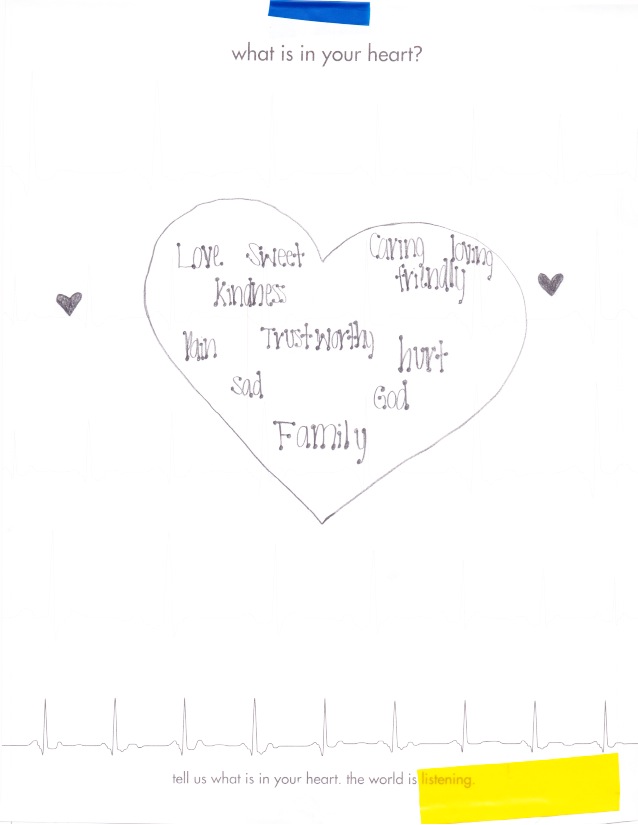 what is in your heart?
Love sweet Caring loving
kindness friendly
Pain Trustworthy hurt
sad God
Family
tell us what is in your heart. the world is listening.